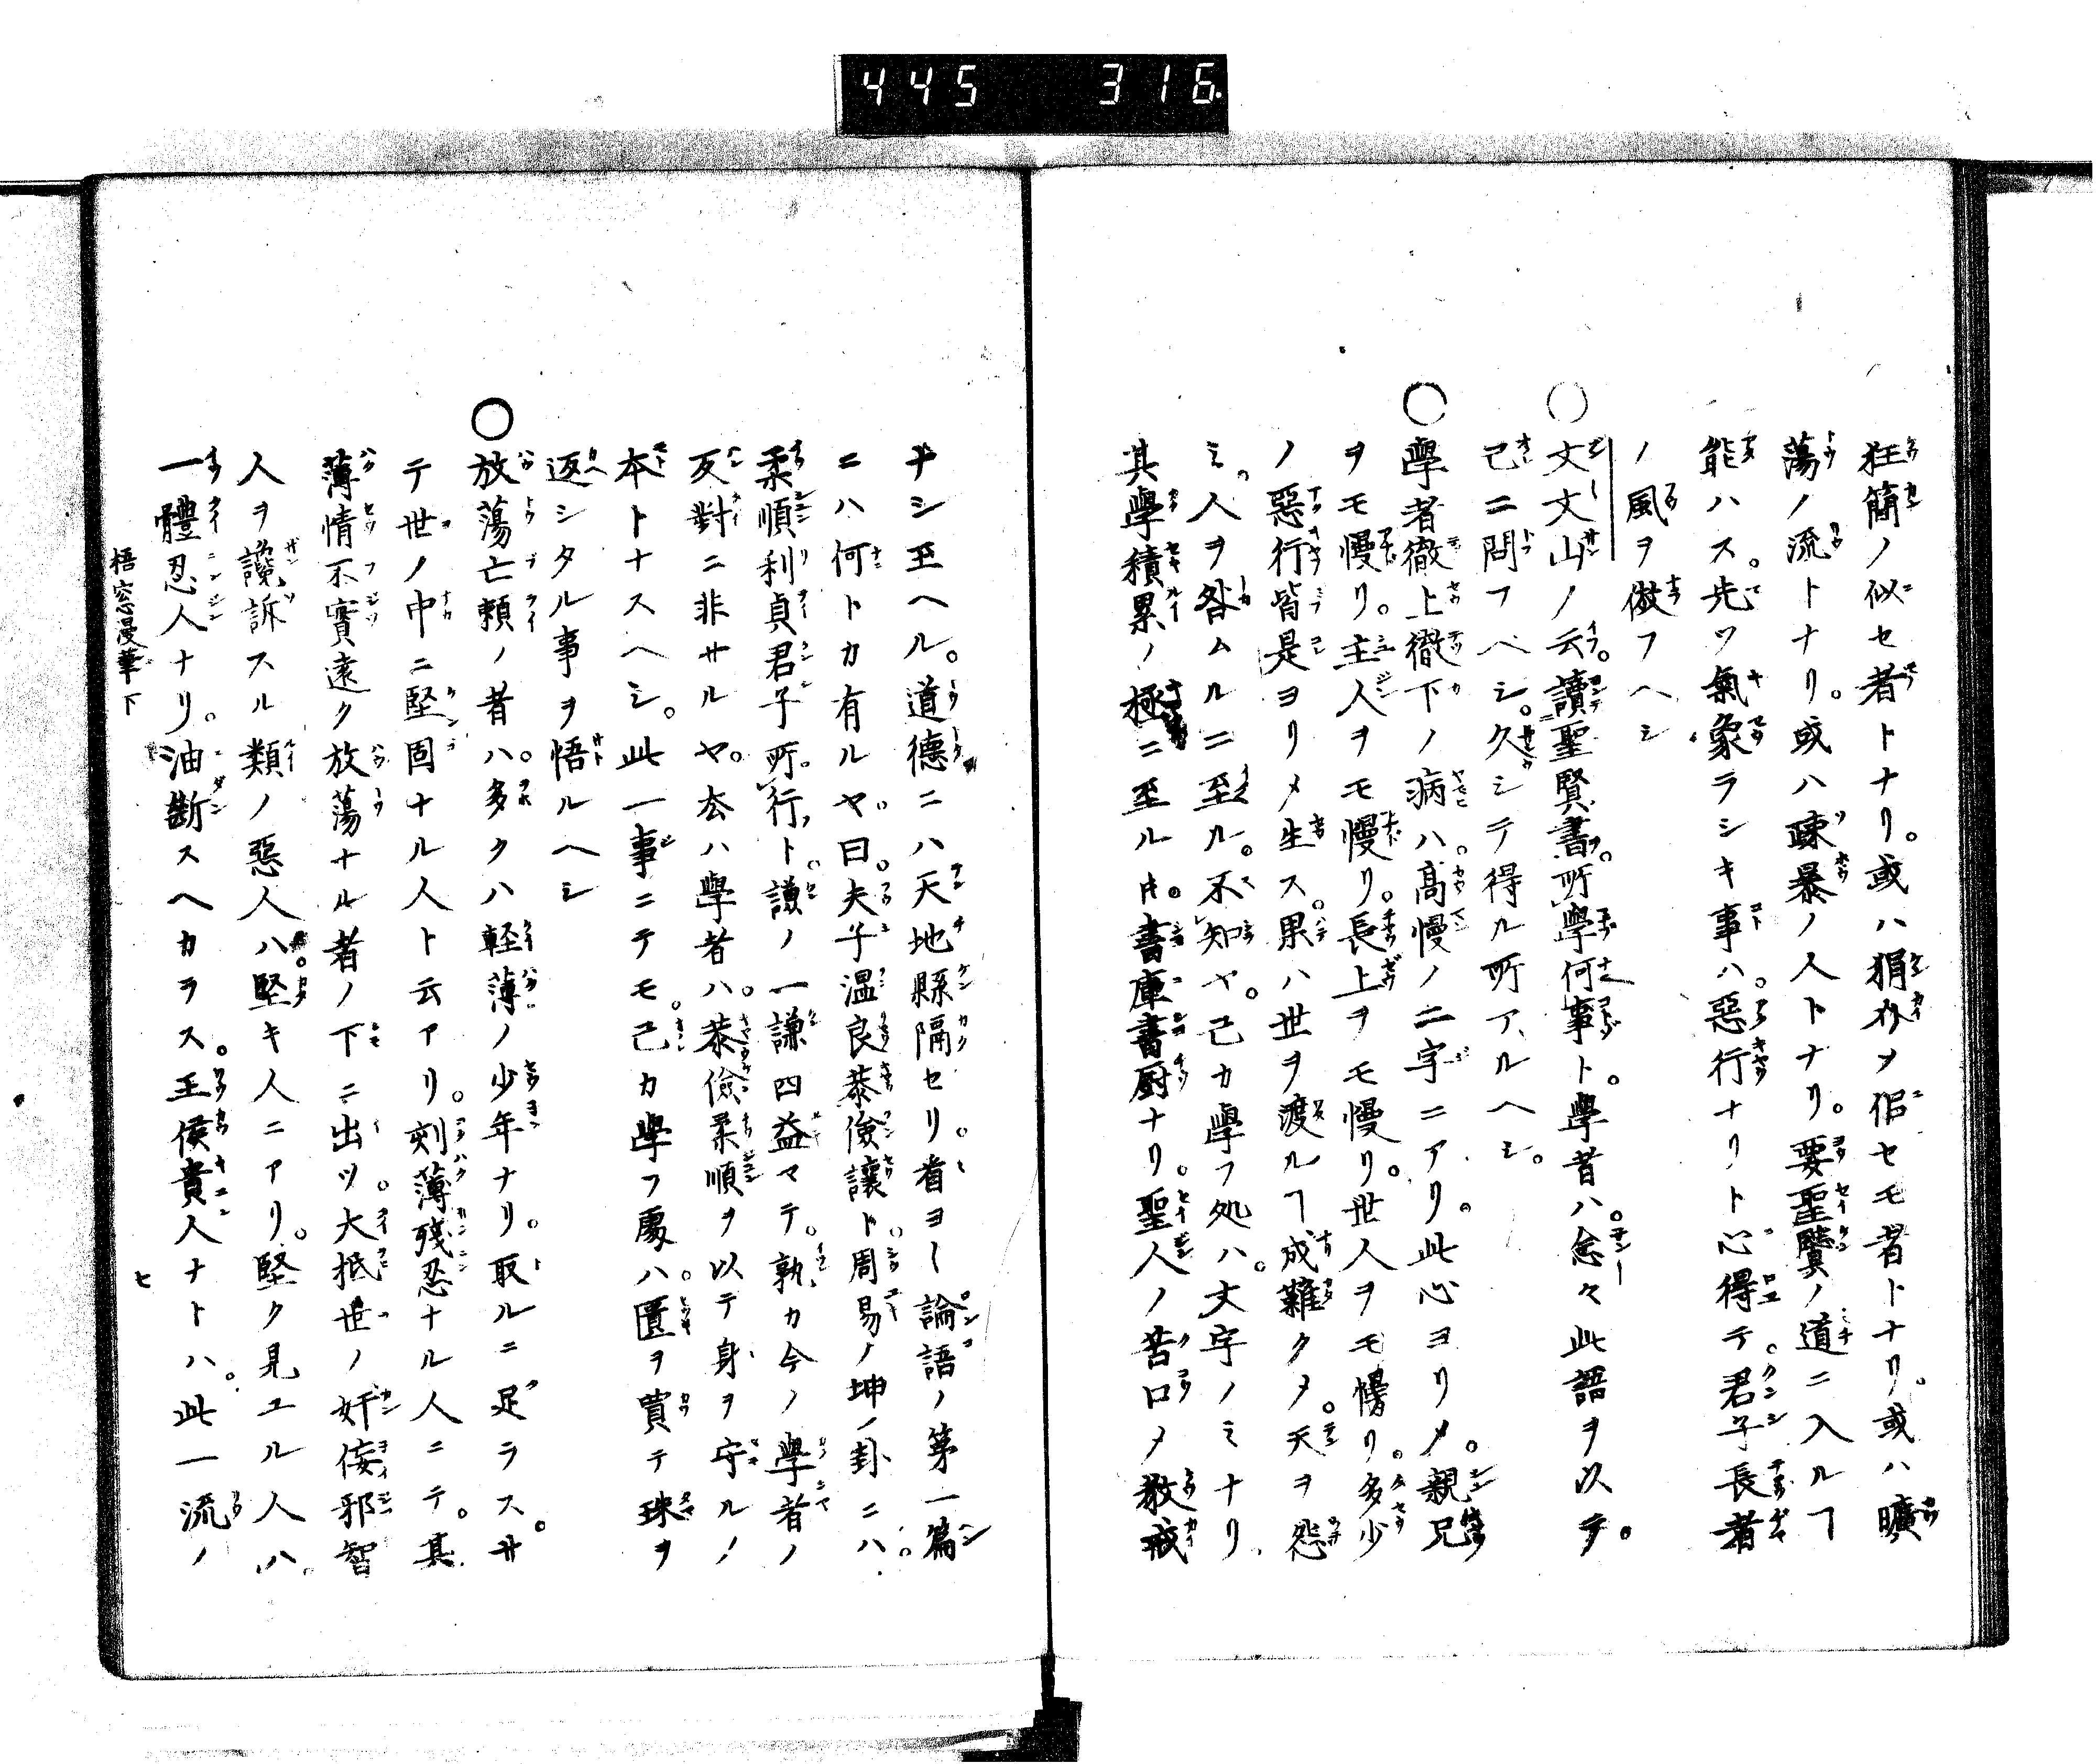 445 316
狂簡ノ似セ者トナリ。或ハ狷介ヲ佀セモ者トナリ。或ハ曠
蕩ノ流トナリ。或ハ疎暴ノ人トナリ。要聖賢ノ道ニ入ルヿ
能ハス。先ツ氣象ラシキ事ハ。惡行ナリト心得テ。君子長者
ノ風ヲ倣フヘシ
○文文山ノ云。讀聖賢書。所學何事ト。學者ハ。念々此語ヲ以テ。
己ニ問フヘシ。久シテ得ル所アルヘシ。
○學者徹上徹下ノ病ハ。高慢ノ二字ニアリ。此心ヨリメ。親兄
ヲモ慢リ。主人ヲモ慢リ。長上ヲモ慢リ。世人ヲモ慢リ。多少
ノ惡行皆是ヨリメ生ス。果ハ世ヲ渡ルヿ成難クメ。天ヲ怨
ミ。人ヲ咎ムルニ至ル。不知ヤ。己カ學フ処ハ。文字ノミナリ。
其學積累ノ極ニ至ルモ。書庫書厨ナリ。聖人ノ苦口メ教戒
ナシ玉ヘル。道德ニハ天地縣隔セリ。看ヨ論語ノ第一篇
ニハ何トカ有ルヤ。曰。夫子温良恭儉讓ト。周易ノ坤ノ卦ニハ。
柔順利貞君子所行ト。謙ノ一謙四益マテ。孰カ今ノ學者ノ
反對ニ非サルヤ。夲ハ學者ハ。恭儉柔順ヲ以テ身ヲ守ルノ
本トナスヘシ。此一事ニテモ。己カ學フ處ハ。匱ヲ買テ珠ヲ
返シタル事ヲ悟ルヘシ
○放蕩亡頼ノ者ハ。多クハ輕薄ノ少年ナリ。取ルニ足ラス。サ
テ世ノ中ニ堅固ナル人ト云アリ。刻薄殘忍ナル人ニテ。其
薄情不實遠ク放蕩ナル者ノ下ニ出ツ。大抵世ノ奸佞邪智
人ヲ讒訴スル類ノ惡人ハ。堅キ人ニアリ。堅ク見ユル人ハ。
一體忍人ナリ。油斷スヘカラス。王侯貴人ナトハ。此一流ノ
梧窓漫筆下 七